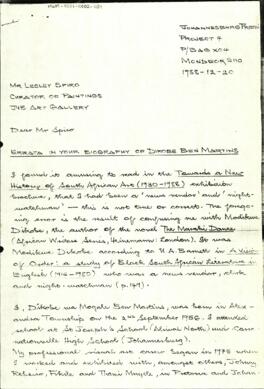 Johannesburg Prison
Project 4
P/Bag X04
Mondeor 2110
1988-12-20
Mr Lesley Spiro
Curator of Paintings
JHB Art Gallery
Dear Mr Spiro
Errata in your biography of Dikobe Ben Martins
I found it amusing to read in the Towards a New
History of South African Art (1930-1988) exhibition
brochure, that I had been a 'news vendor' and 'night-
watchman' as this is not true or correct. The foregoing
error is the result of confusing me with Modikwe
Dikobe, the author of the novel The Marabi Dance
(African Writers Series, Heinemann London). It was
Modikwe Dikobe according to U.A. Barnett in A Vision
of Order: a study of Black South African Literature in
English (1914-1980) who was a news vendor, clerk
and night-watchman (p.149).
I, Dikobe wa Mogale Ben Martins, was born in Alex-
andra Township on the 2nd September 1956. I attended
school at St Joseph's School (Aliwal North) and Coro-
nationville High School (Johannesburg).
My professional visual art career began in 1975 when
I worked and exhibited with amongst others, Johnny
Ribeiro, Fikile and Thami Mnyele, in Pretoria and Johan-